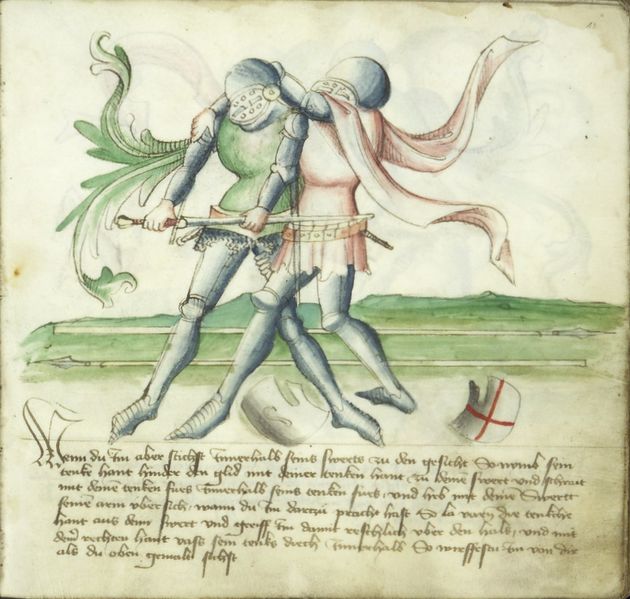 Wenn du Im aber stichst Innerhalb seins swerts zu den gesicht So nymb sein
tenke hant hinder den glid mit deiner tenken hant zu deine swert vnd schreit
mit deinē tenken fues Innerhalb seins tenken fues vnd heb mit deinē Swert
seinen arm vber sich wann du Im darczu pracht hast So la varen die tenkhe
hant aus dem swert vnd greiff Im damit vber den hals vnd mit
deiner rechten hant vass sein tenks Innerhalb So wirffestu Im von dir
als du oben gemalt sichst